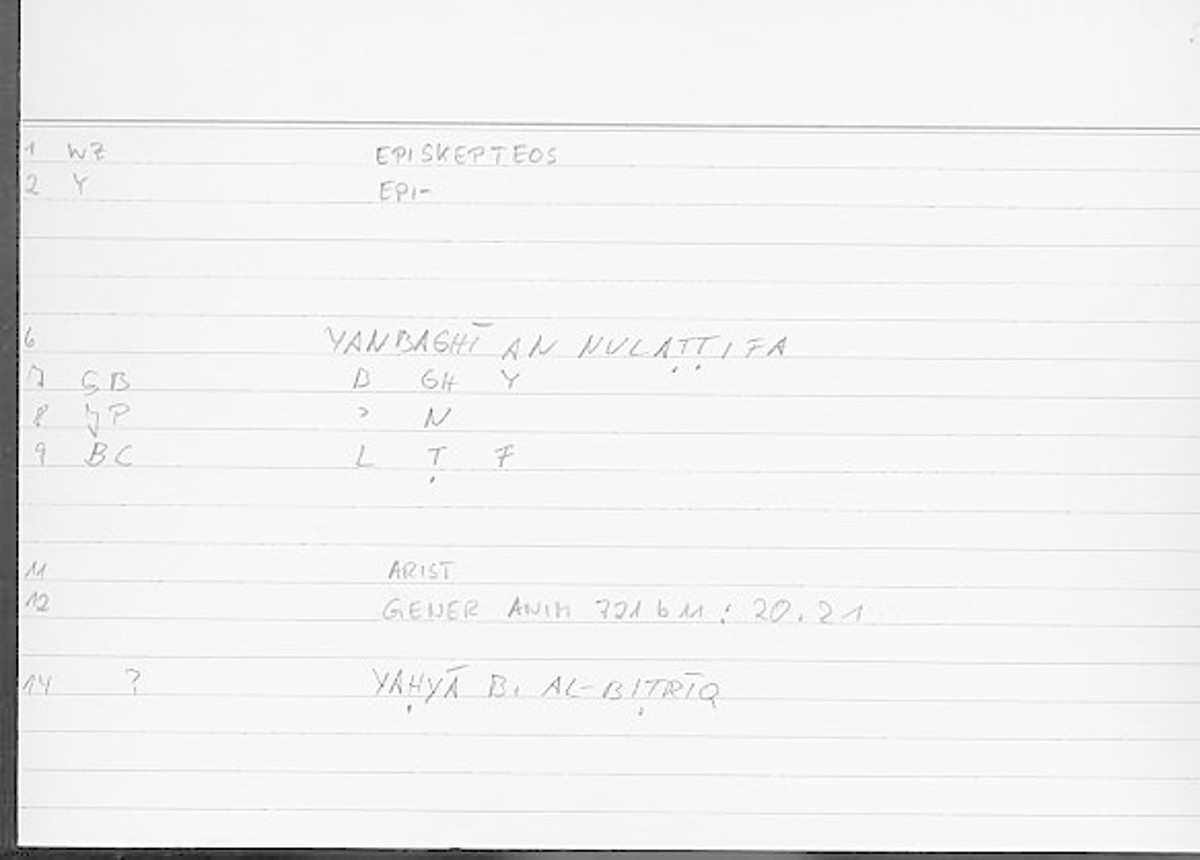 1 WZ EPISKEPTEOS
2 Y EPI-
6 YANBAGHĪ AN NULAṬṬIFA
7 GB B GH Y
8 JP ʾ N
9 BC L Ṭ F
11 ARIST
12 GENER ANIM 721 b 11 : 20.21
14 ? YAḤYĀ B. AL-BIṬRĪQ